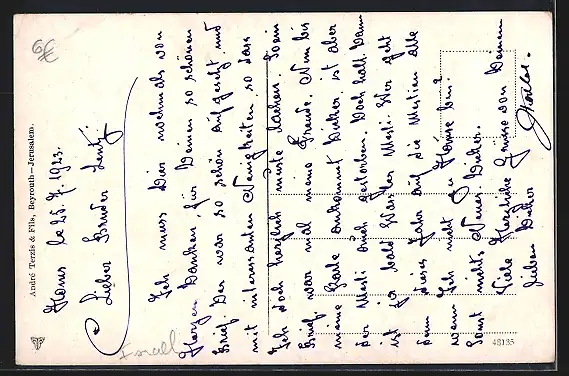 André Terzis & Fils, Beyrouth—Jerusalem.
Homs le 25.7.1923.
Lieber Bruder
Ich muss Dir nochmals von
Herzen Danken, für Deinen so schönen
Brief. Der war so schön aufgesetzt und
mit interesanten Neuigkeiten. so dass
Ich doch herzlich musste Lachen. Dein
Brief war mal meine Freude. Nun bis
meine Karte ankommt Lieber ist aber
der Mesti auch gestorben. Doch halt. Dann
ist ja bald der Mesti. Wer geht
dem dieses Jahr auf die Mestien alle
wenn Ich nicht zu Hause bin?
Sonst nichts Neues Lieber.
Viele Herzliche Grüsse von Deinem
lieben Bruder
48135
Israel